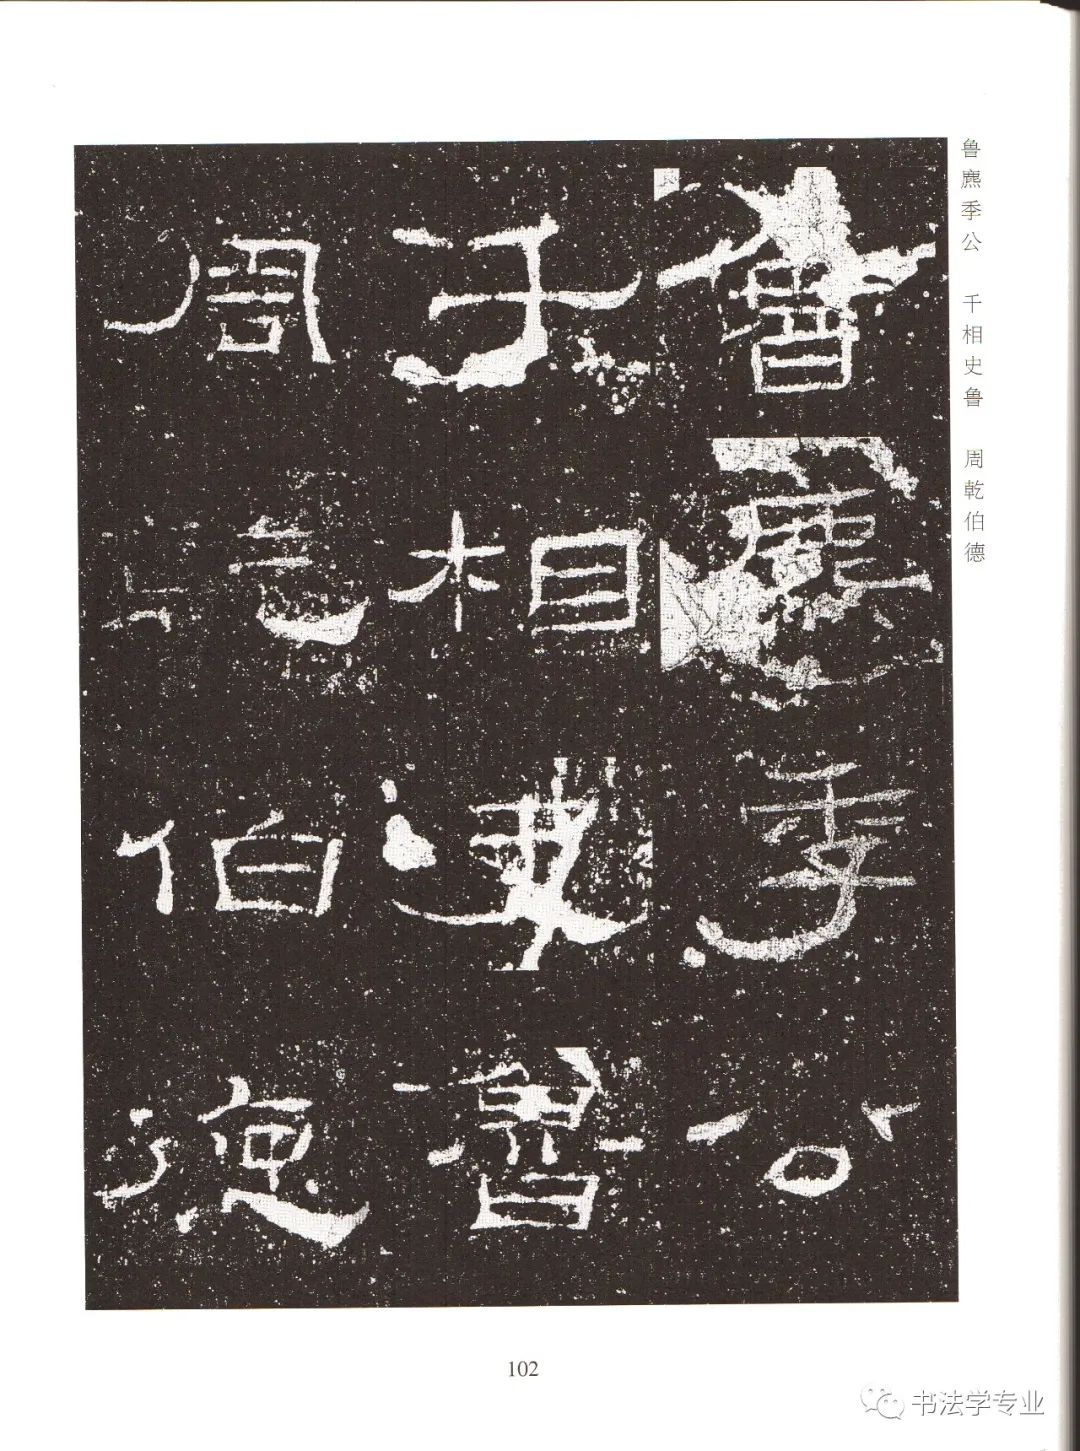 魯麃季公
千相史魯
周乾伯德
鲁麃季公 千相史鲁 周乾伯德
102
书法学专业